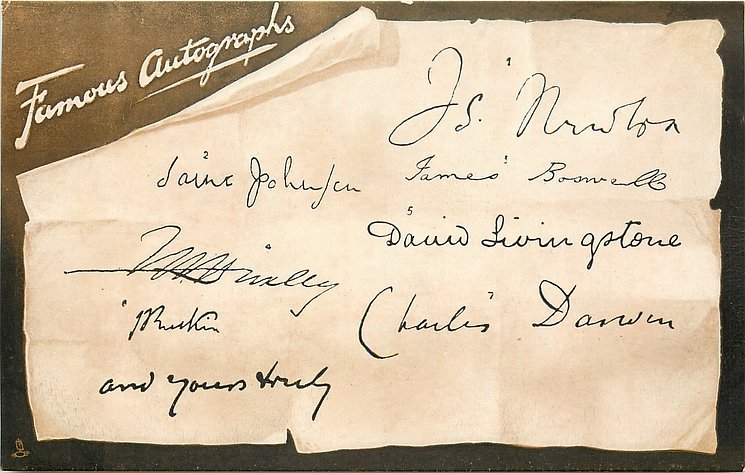 Famous Autographs
Is. Newton
Johnson
James Boswell
David Livingstone
Huxley
JRuskin
Charles Darwin
and yours truly